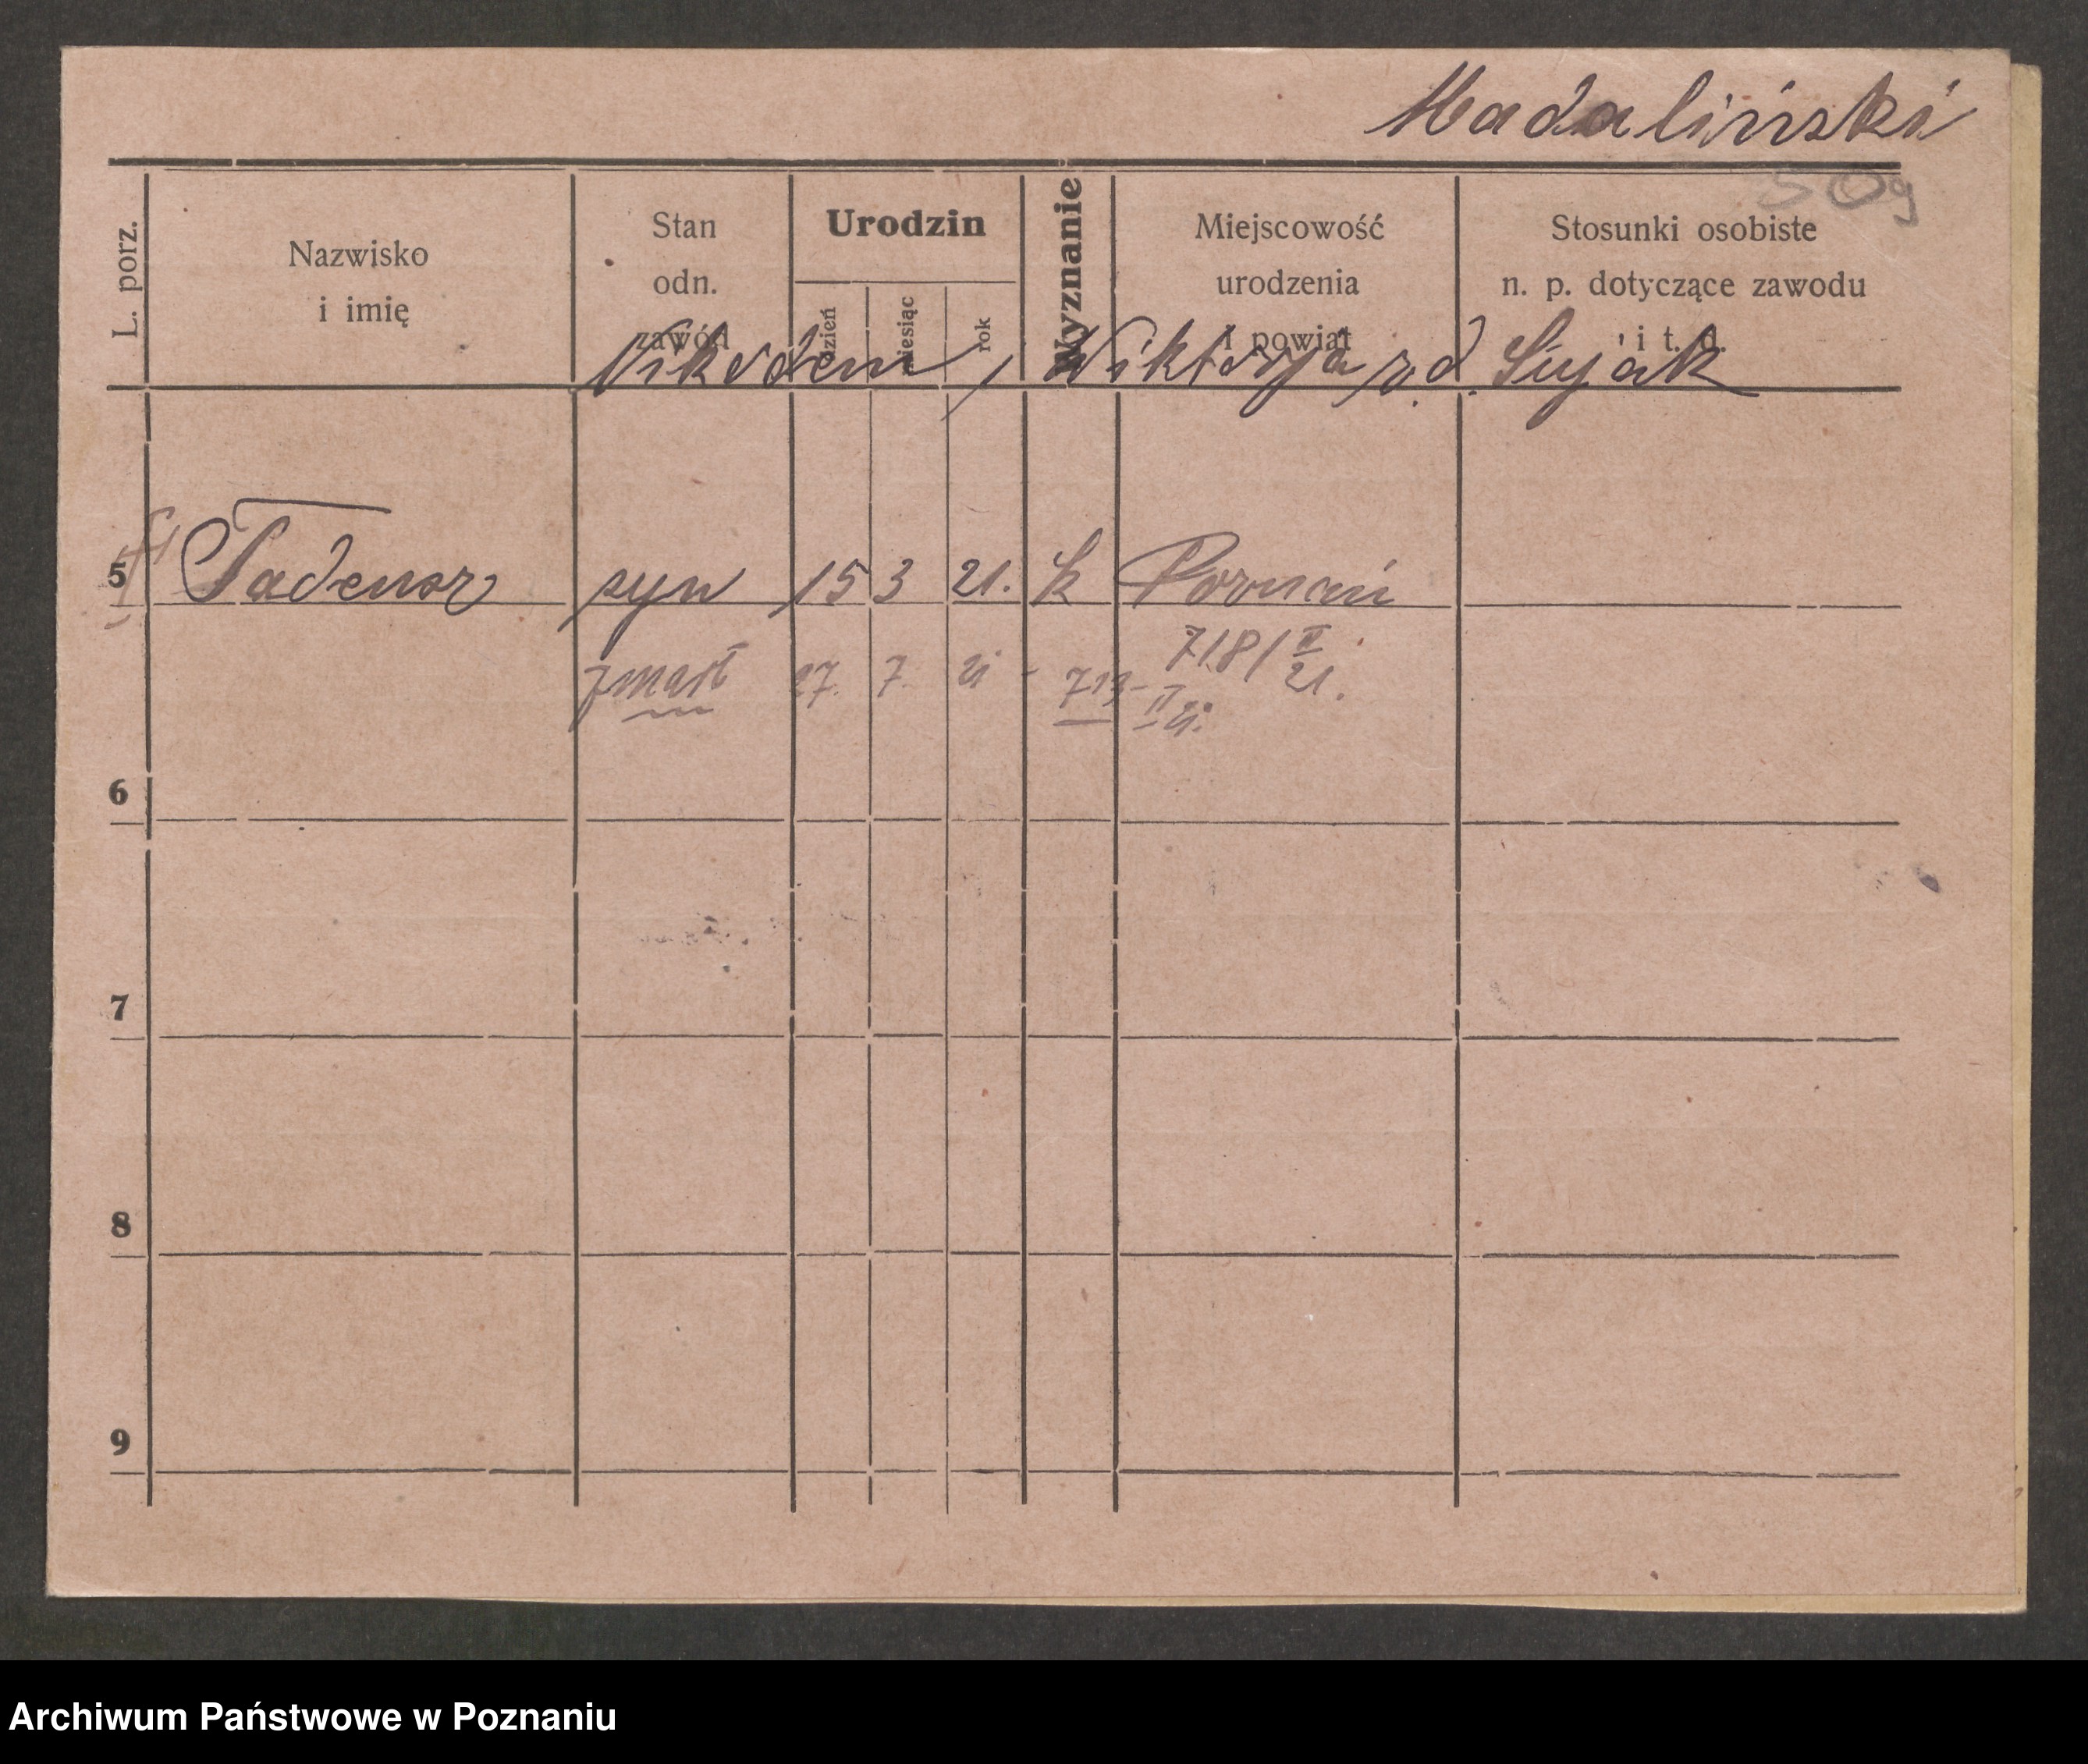 Madaliński
509
L. porz.
Nazwisko
i imię
Stan
odn.
zawód
Urodzin
dzień
miesiąc
rok
Wyznanie
Miejscowość
urodzenia
i powiat
Stosunki osobiste
n. p. dotyczące zawodu
i t. d.
Nikodem, Wiktorja r.d. Sujak
5 Tadeusz syn 15 3 21. k Poznań
718/II 21.
zmarł 27. 7. 21 - 713 - II 21.
6
7
8
9
Archiwum Państwowe w Poznaniu